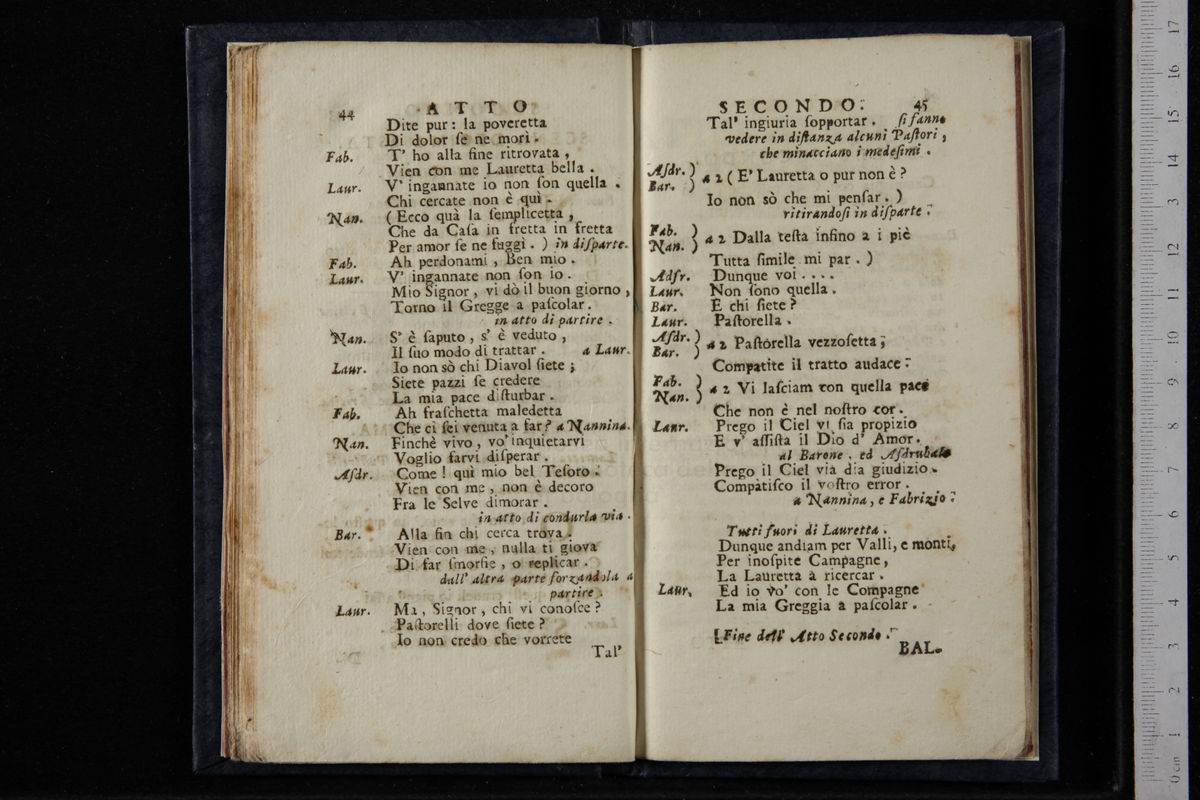 44 ATTO
Dite pur : la poveretta
Di dolor ſe ne morì .
Fab. T' ho alla fine ritrovata ,
Vien con me Lauretta bella .
Laur. V' ingannate io non ſon quella .
Chi cercate non è quì .
Nan. ( Ecco quà la ſemplicetta ,
Che da Caſa in fretta in fretta
Per amor ſe ne fuggì . ) in diſparte.
Fab. Ah perdonami , Ben mio .
Laur. V' ingannate non ſon io .
Mio Signor , vi dò il buon giorno ,
Torno il Gregge a paſcolar .
in atto di partire .
Nan. S' è ſaputo , s' è veduto ,
Il ſuo modo di trattar . a Laur.
Laur. Io non sò chi Diavol ſiete ;
Siete pazzi ſe credere
La mia pace diſturbar .
Fab. Ah fraſchetta maledetta
Che ci ſei venuta a far ? a Nannina.
Nan. Finchè vivo , vo' inquietarvi
Voglio farvi diſperar .
Aſdr. Come ! quì mio bel Teſoro .
Vien con me , non è decoro
Fra le Selve dimorar .
in atto di condurla via .
Bar. Alla fin chi cerca trova .
Vien con me , nulla ti giova
Di far ſmorfie , o replicar .
dall' altra parte forzandola a
partire .
Laur. Ma , Signor , chi vi conoſce ?
Paſtorelli dove ſiete ?
Io non credo che vorrete
Tal'
SECONDO. 45
Tal' ingiuria ſopportar . ſi fanno
vedere in diſtanza alcuni Paſtori ,
che minacciano i medeſimi .
Aſdr. )
Bar. ) a 2 ( E' Lauretta o pur non è ?
Io non sò che mi penſar . )
ritirandoſi in diſparte .
Fab. )
Nan. ) a 2 Dalla teſta infino a i piè
Tutta ſimile mi par . )
Adſr. Dunque voi . . . .
Laur. Non ſono quella .
Bar. E chi ſiete ?
Laur. Paſtorella .
Aſdr. )
Bar. ) a 2 Paſtorella vezzoſetta ;
Compatite il tratto audace .
Fab. )
Nan. ) a 2 Vi laſciam con quella pace
Che non è nel noſtro cor .
Laur. Prego il Ciel vi ſia propizio
E v' aſſiſta il Dio d' Amor .
al Barone . ed Aſdrubale
Prego il Ciel via dia giudizio .
Compatiſco il voſtro error .
a Nannina , e Fabrizio .
Tutti fuori di Lauretta .
Dunque andiam per Valli, e monti,
Per inoſpite Campagne ,
La Lauretta a ricercar .
Laur. Ed io vo' con le Compagne
La mia Greggia a paſcolar .
[Fine dell' Atto Secondo .
BAL-
0 cm 1 2 3 4 5 6 7 8 9 10 11 12 13 14 15 16 17